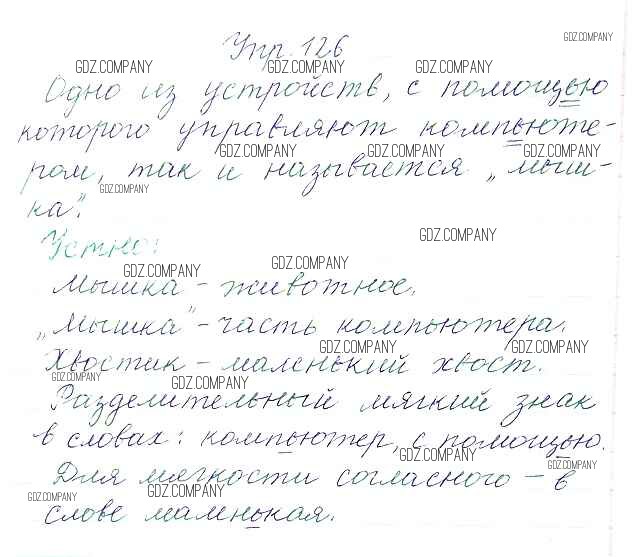 Упр. 126
GDZ.COMPANY
GDZ.COMPANY GDZ.COMPANY GDZ.COMPANY
Одно из устройств, с помощью
которого управляют компьюте-
GDZ.COMPANY GDZ.COMPANY GDZ.COMPANY
ром, так и называется „мыш-
GDZ.COMPANY
ка".
GDZ.COMPANY
Устно:
GDZ.COMPANY GDZ.COMPANY
Мышка - животное.
„Мышка" - часть компьютера.
GDZ.COMPANY GDZ.COMPANY
Хвостик - маленький хвост.
GDZ.COMPANY GDZ.COMPANY
Разделительный мягкий знак
в словах: компьютер, с помощью.
GDZ.COMPANY GDZ.COMPANY
Для мягкости согласного - в
GDZ.COMPANY GDZ.COMPANY
слове маленькая.